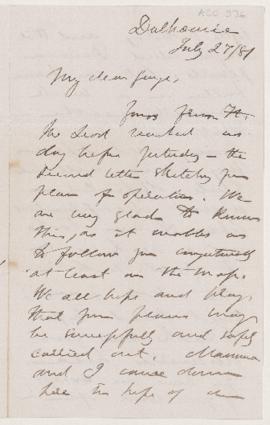 ACC 936
Dalhousie
July 27/81
My dear George,
Yours from Ft.
McLeod reached us
day before yesterday - the
second letter sketches your
plans for operation. We
are very glad to know
this, as it enables us
to follow you
at least on the map.
We all hope and pray
that your plans may
be successfully and safely
carried out. Mamma
and I came down
here in hope of